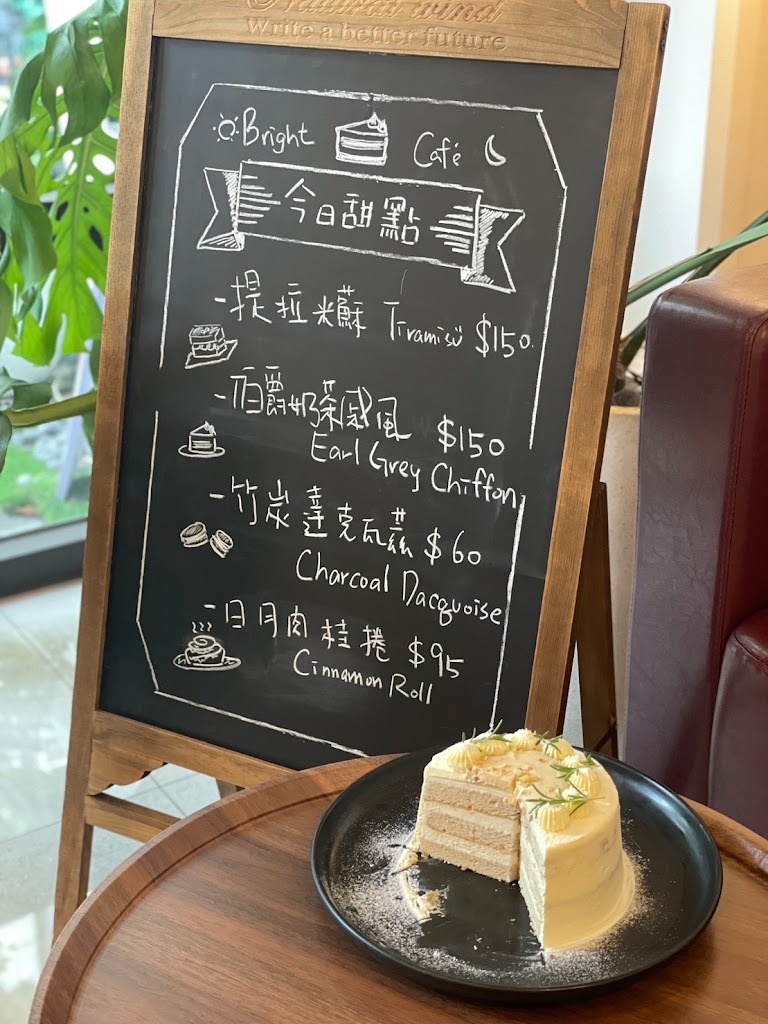 Natural wind
Write a better future
Bright Café
今日甜點
-提拉米蘇 Tiramisu $150.
-伯爵奶茶戚風 $150
Earl Grey Chiffon
-竹炭達克瓦茲 $60
Charcoal Dacquoise
-日月肉桂捲 $95
Cinnamon Roll